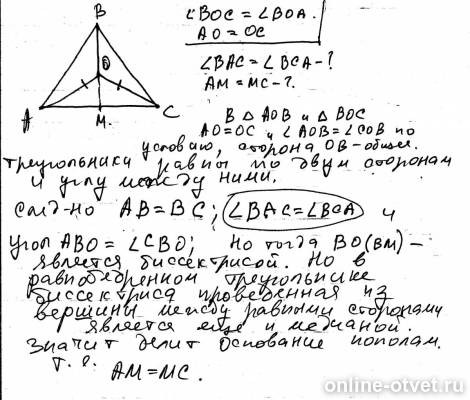 B
∠BOC = ∠BOA.
AO = OC
O
∠BAC = ∠BCA - ?
AM = MC - ?
A
M.
C
В △ AOB и △ BOC
AO = OC и ∠AOB = ∠COB по
условию, сторона OB - общая.
треугольники равны по двум сторонам
и углу между ними.
след-но AB = BC; ∠BAC = ∠BCA и
угол ABO = ∠CBO; Но тогда BO (BM) -
является биссектрисой. Но в
равнобедренном треугольнике
биссектриса проведенная из
вершины между равными сторонами
является еще и медианой.
Значит делит основание пополам.
т. е.
AM = MC.
online-otvet.ru